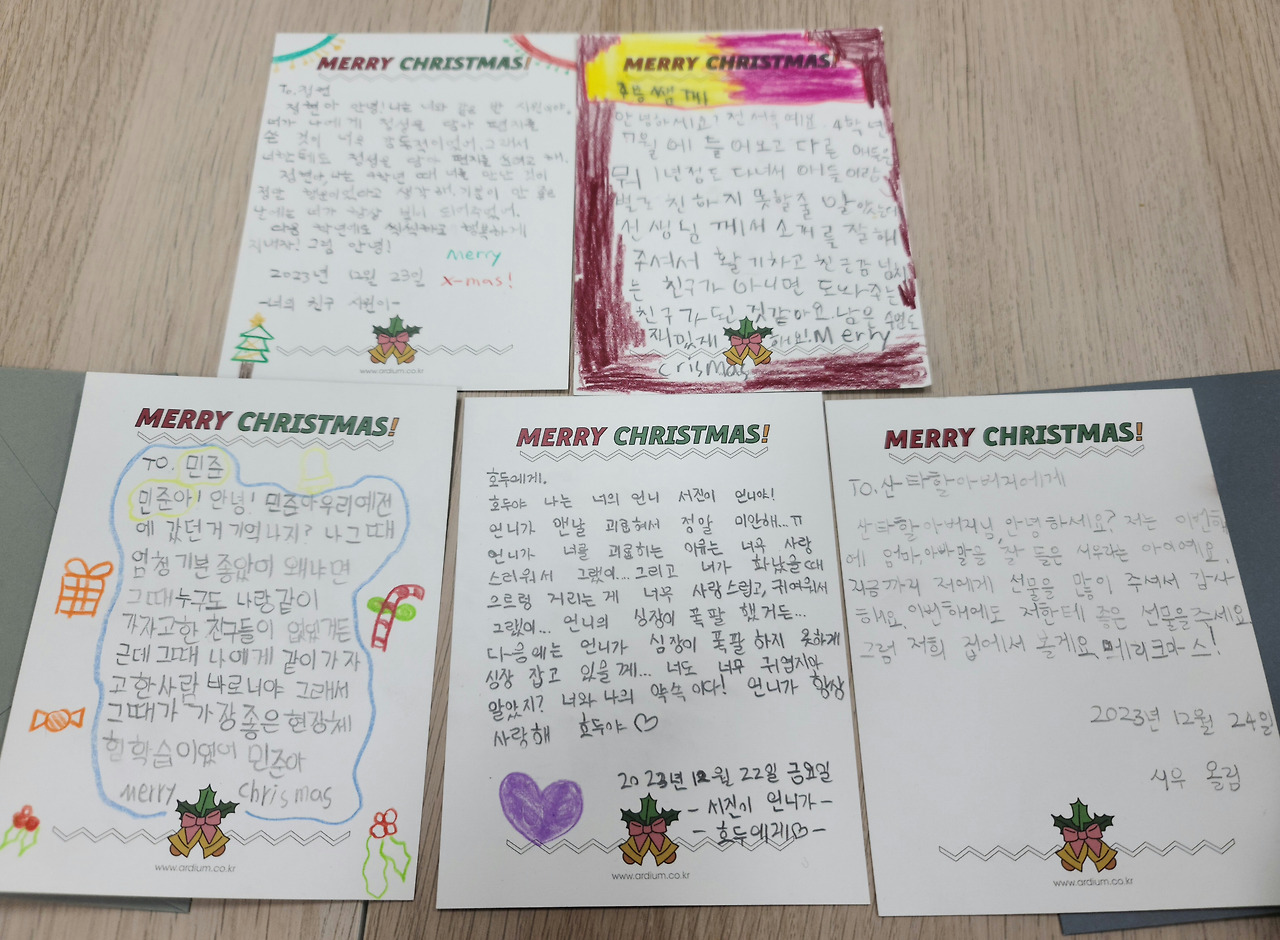 MERRY CHRISTMAS!
To. 정현
정현아 안녕! 나는 너와 같은 반 지원이야.
네가 나에게 정성을 담아 편지를
쓴 것이 너무 감동적이었어. 그래서
너한테도 정성을 담아 편지를 쓰려고 해.
정현아, 나는 4학년 때 너를 만난 것이
정말 행운이었다고 생각해. 기분이 안 좋은
날에도 네가 항상 힘이 되어주었어.
다음 학년에도 친하고 행복하게
지내자! 그럼 안녕!
Merry
2023년 12월 23일 X-mas!
-너의 친구 지원이-
www.ardium.co.kr
MERRY CHRISTMAS!
쌤께
안녕하세요! 전 서후예요. 4학년
7월에 들어오고 다른 애들은
뭐 1년정도 다녀서 애들이랑
별로 친하지 못할줄 알았는데
선생님께서 소개를 잘해
주셔서 활기차고 친근감 넘치
는 친구가 아니면 도와주는
친구가 된 것같아요. 남은 수업도
재밌게 해요! Merry
crismas
MERRY CHRISTMAS!
TO. 민준
민준아! 안녕! 민준아 우리 예전
에 갔던거 기억나지? 나 그때
엄청 기분 좋았어 왜냐면
그때 누구도 나랑 같이
가자고한 친구들이 없었거든
근데 그때 나에게 같이 가자
고 한 사람 바로 너야 그래서
그때가 가장 좋은 현장체
험학습이였어 민준아
merry christmas
www.ardium.co.kr
MERRY CHRISTMAS!
호두에게.
호두야 나는 너의 언니 서진이 언니야!
언니가 맨날 괴롭혀서 정말 미안해...ㅠ
언니가 너를 괴롭히는 이유는 너무 사랑
스러워서 그랬어... 그리고 너가 화났을때
으르렁 거리는게 너무 사랑스럽고, 귀여워서
그랬어... 언니의 심장이 폭팔 했거든...
다음에는 언니가 심장이 폭팔 하지 못하게
심장 잡고 있을게... 너도 너무 귀엽지마
알았지? 너와 나의 약속이다! 언니가 항상
사랑해 호두야 ♡
2023년 12월 22일 금요일
- 서진이 언니가 -
- 호두에게♡ -
www.ardium.co.kr
MERRY CHRISTMAS!
TO. 산타할아버지에게
산타할아버지님, 안녕하세요? 저는 이번해
에 엄마, 아빠말을 잘 들은 서우라는 아이예요.
지금까지 저에게 선물을 많이 주셔서 감사
해요. 이번해에도 저한테 좋은 선물을 주세요!
그럼 저희 집에서 볼게요. 메리크마스!
2023년 12월 24일
서우 올림
www.ardium.co.kr